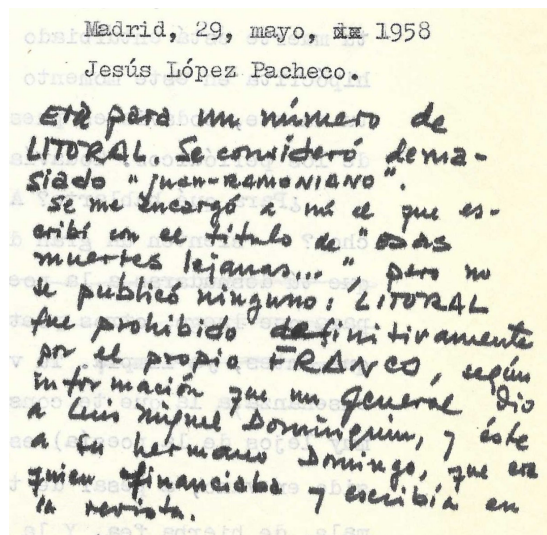 Madrid, 29, mayo, xx 1958
Jesús López Pacheco.
Era para un número de
LITORAL. Se consideró dema-
siado "juan-RAMONIANO".
Se me encargó a mí el que es-
cribí con el título de "ESAS
muertes lejanas..." pero no
se publicó ninguno: LITORAL
fue prohibido definitivamente
por el propio FRANCO, según
información que un general dio
a Luis Miguel Dominguín, y éste
a su hermano Domingo, que era
quien financiaba y escribía en
la revista.